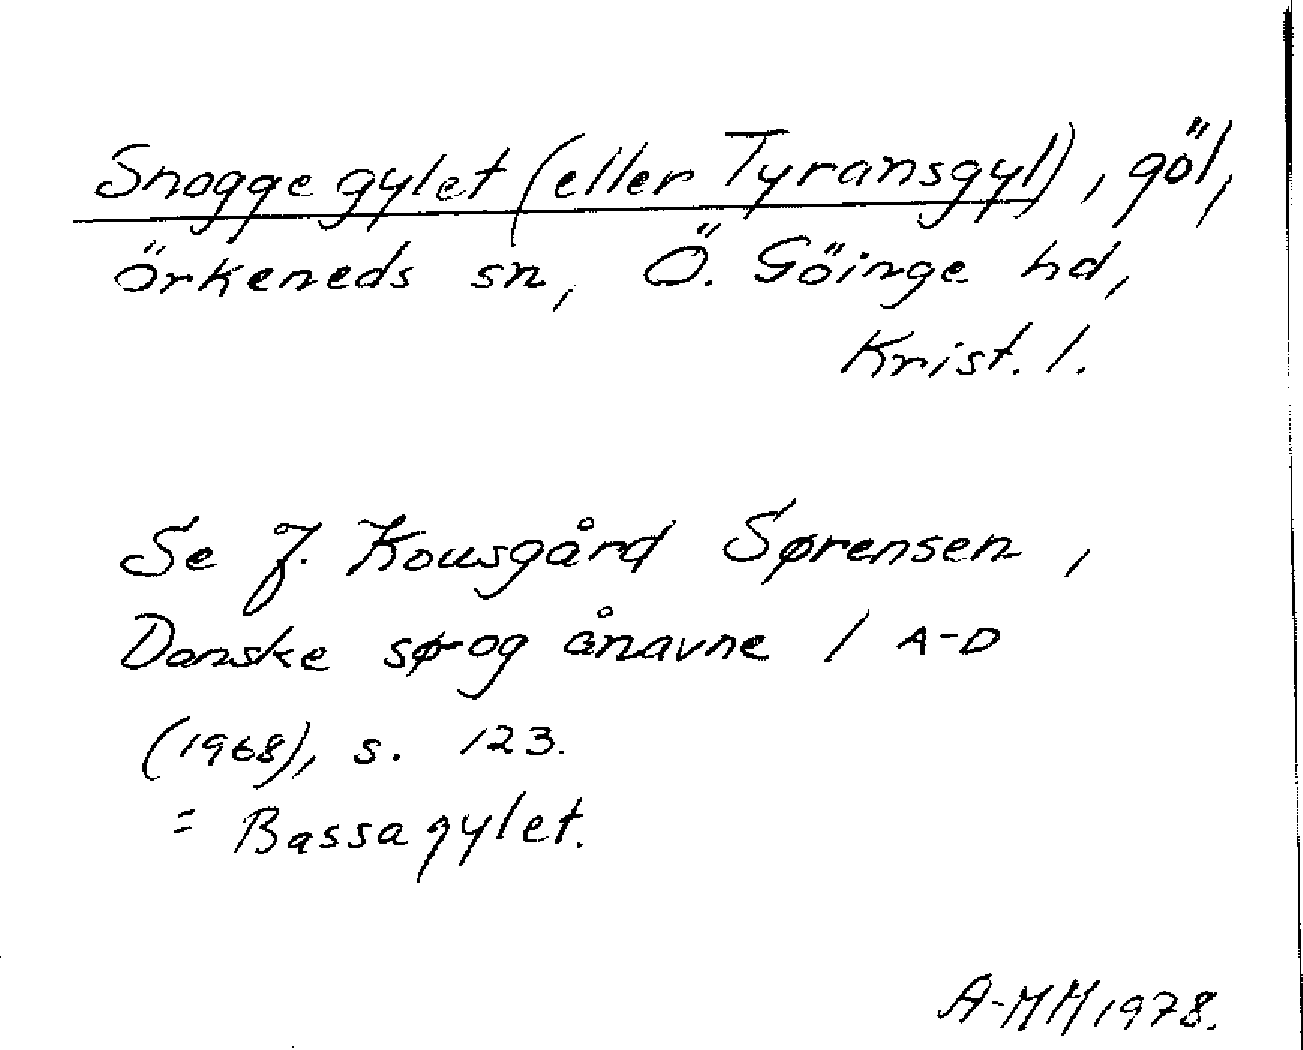 Snoggegylet (eller Tyransgyl), göl,
Örkeneds sn, Ö. Göinge hd,
Krist. l.
Se J. Kousgård Sørensen,
Danske sø- og ånavne 1 A-D
(1968), s. 123.
= Bassagylet.
A-MH 1978.